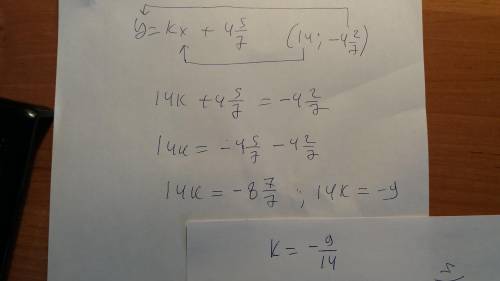 y = kx + 4 5/7 (14; -4 2/7)
14k + 4 5/7 = -4 2/7
14k = -4 5/7 - 4 2/7
14k = -8 7/7 ; 14k = -9
k = - 9/14